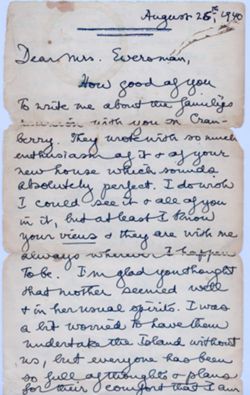 August 25th, 1940
Dear Mrs. Everoman,
How good of you
to write me about the family's
with you in Cran-
berry. They wrote with so much
enthusiasm of it & of your
new house which sounds
absolutely perfect. I do wish
I could see it & all of you
in it, but at least I know
your views & they are with me
always wherever I happen
to be. I'm glad you thought
that mother seemed well
& in her usual spirits. I was
a bit worried to have them
undertake the Island without
us, but everyone has been
so full of thoughts & plans
for their comfort that I am